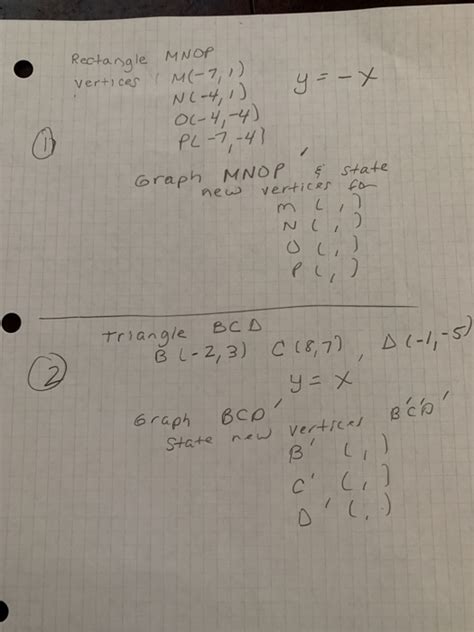 Rectangle MNOP
vertices M(-7,1) y = -x
N(-4,1)
O(-4,-4)
P(-7,-4)
①
Graph MNOP' & state
new vertices for
M ( , )
N ( , )
O ( , )
P ( , )
Triangle BCD
B(-2,3) C(8,7), D(-1,-5)
②
y = x
Graph BCD'
State new vertices B'C'D'
B' ( , )
C' ( , )
D' ( , )